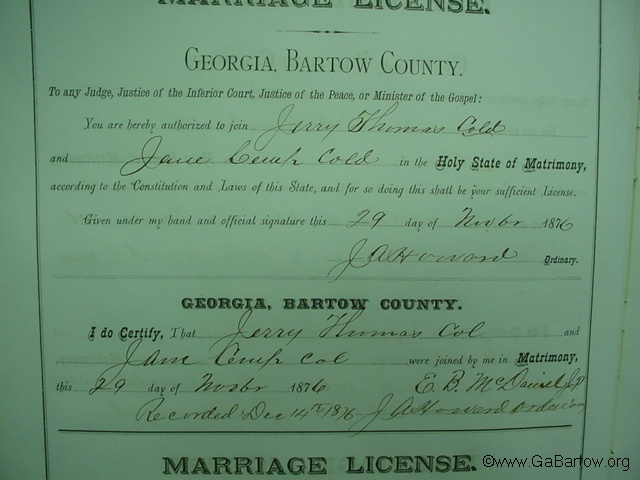 MARRIAGE LICENSE.
GEORGIA, BARTOW COUNTY.
To any Judge, Justice of the Inferior Court, Justice of the Peace, or Minister of the Gospel:
You are hereby authorized to join Jerry Thomas Cold
and Jane Cemp Cold in the Holy State of Matrimony,
according to the Constitution and Laws of this State, and for so doing this shall be your sufficient License.
Given under my hand and official signature this 29 day of Novbr 1876
J A Howard Ordinary.
GEORGIA, BARTOW COUNTY.
I do Certify, That Jerry Thomas Col and
Jane Cemp Col were joined by me in Matrimony,
this 29 day of Novbr 1876 E. B. McDaniel JP
Recorded Dec 14th 1876 J A Howard Ordinary
MARRIAGE LICENSE.
©www.GaBartow.org